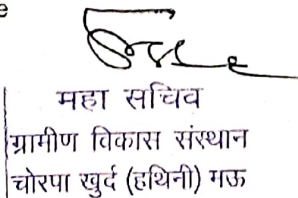 महा सचिव
ग्रामीण विकास संस्थान
चोरपा खुर्द (हथिनी) मऊ